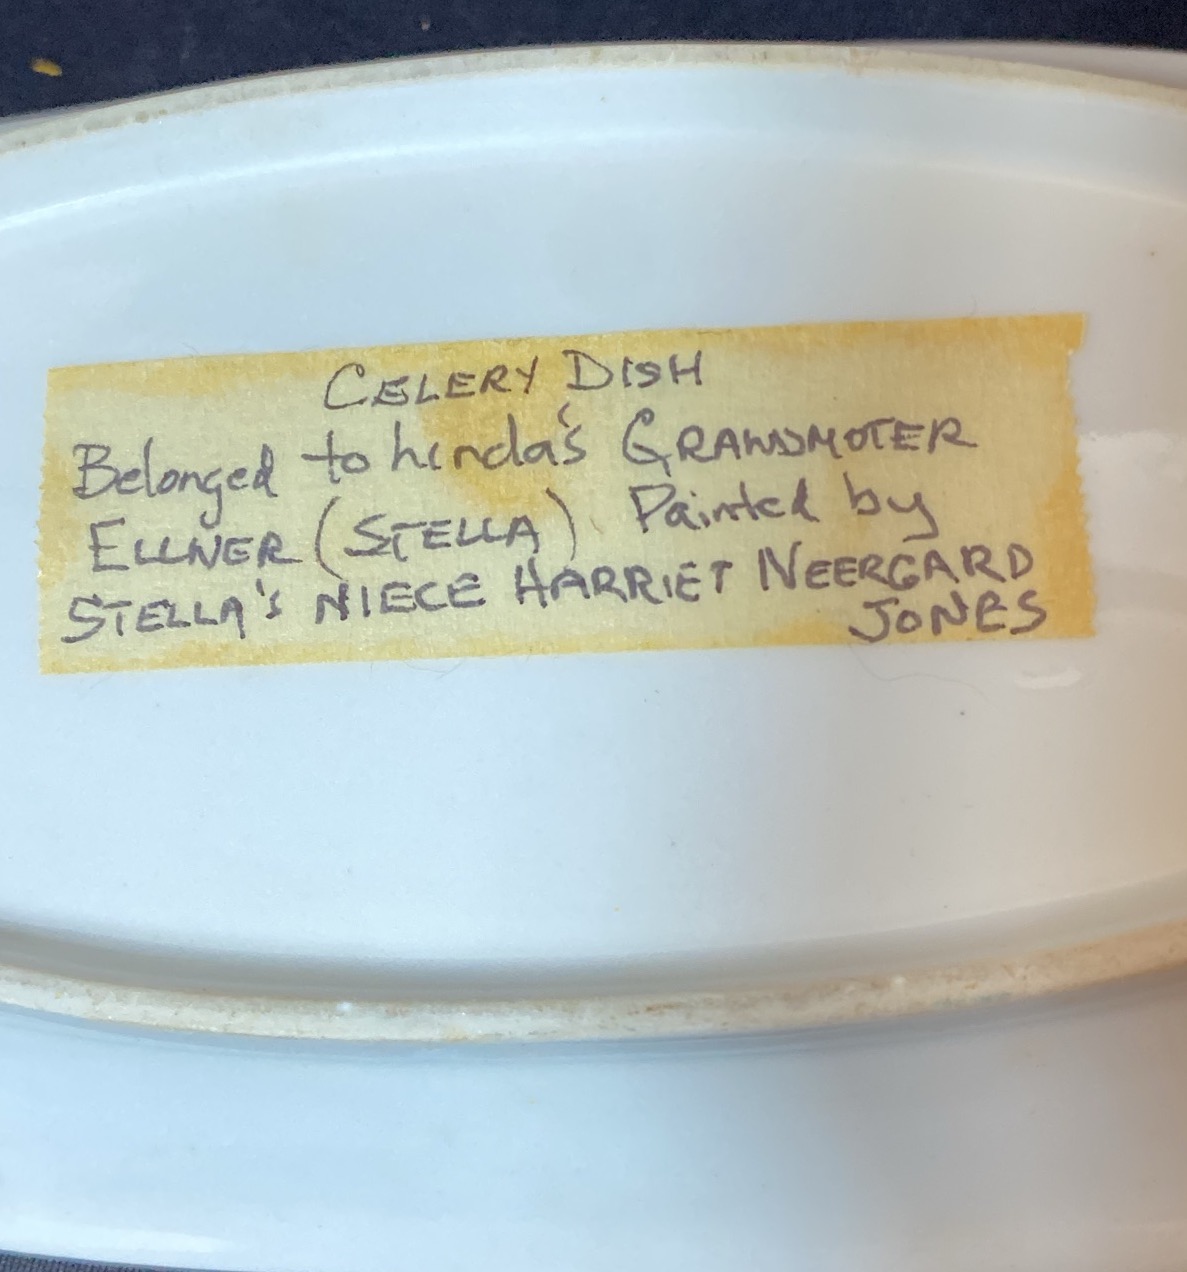 CELERY DISH
Belonged to Linda's GRANDMOTER
ELLNER (STELLA) Painted by
STELLA'S NIECE HARRIET NEERGARD
JONES